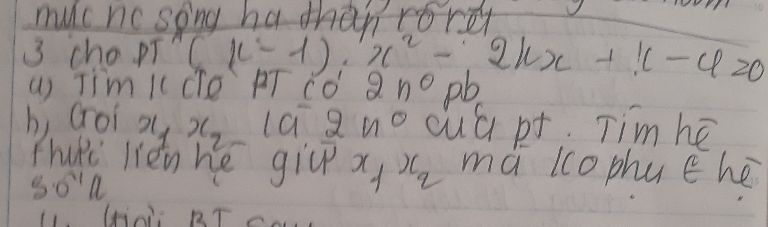 mực nc sông hạ thấp
3 cho PT (k-1).x² - 2kx + k-4=0
a) Tìm k để PT có 2 n° pb
b, Gọi x₁ x₂ là 2 n° của pt. Tìm hệ
thức liên hệ giữa x₁ x₂ mà ko phụ ∈ hệ
số k
4. Giải BT sau